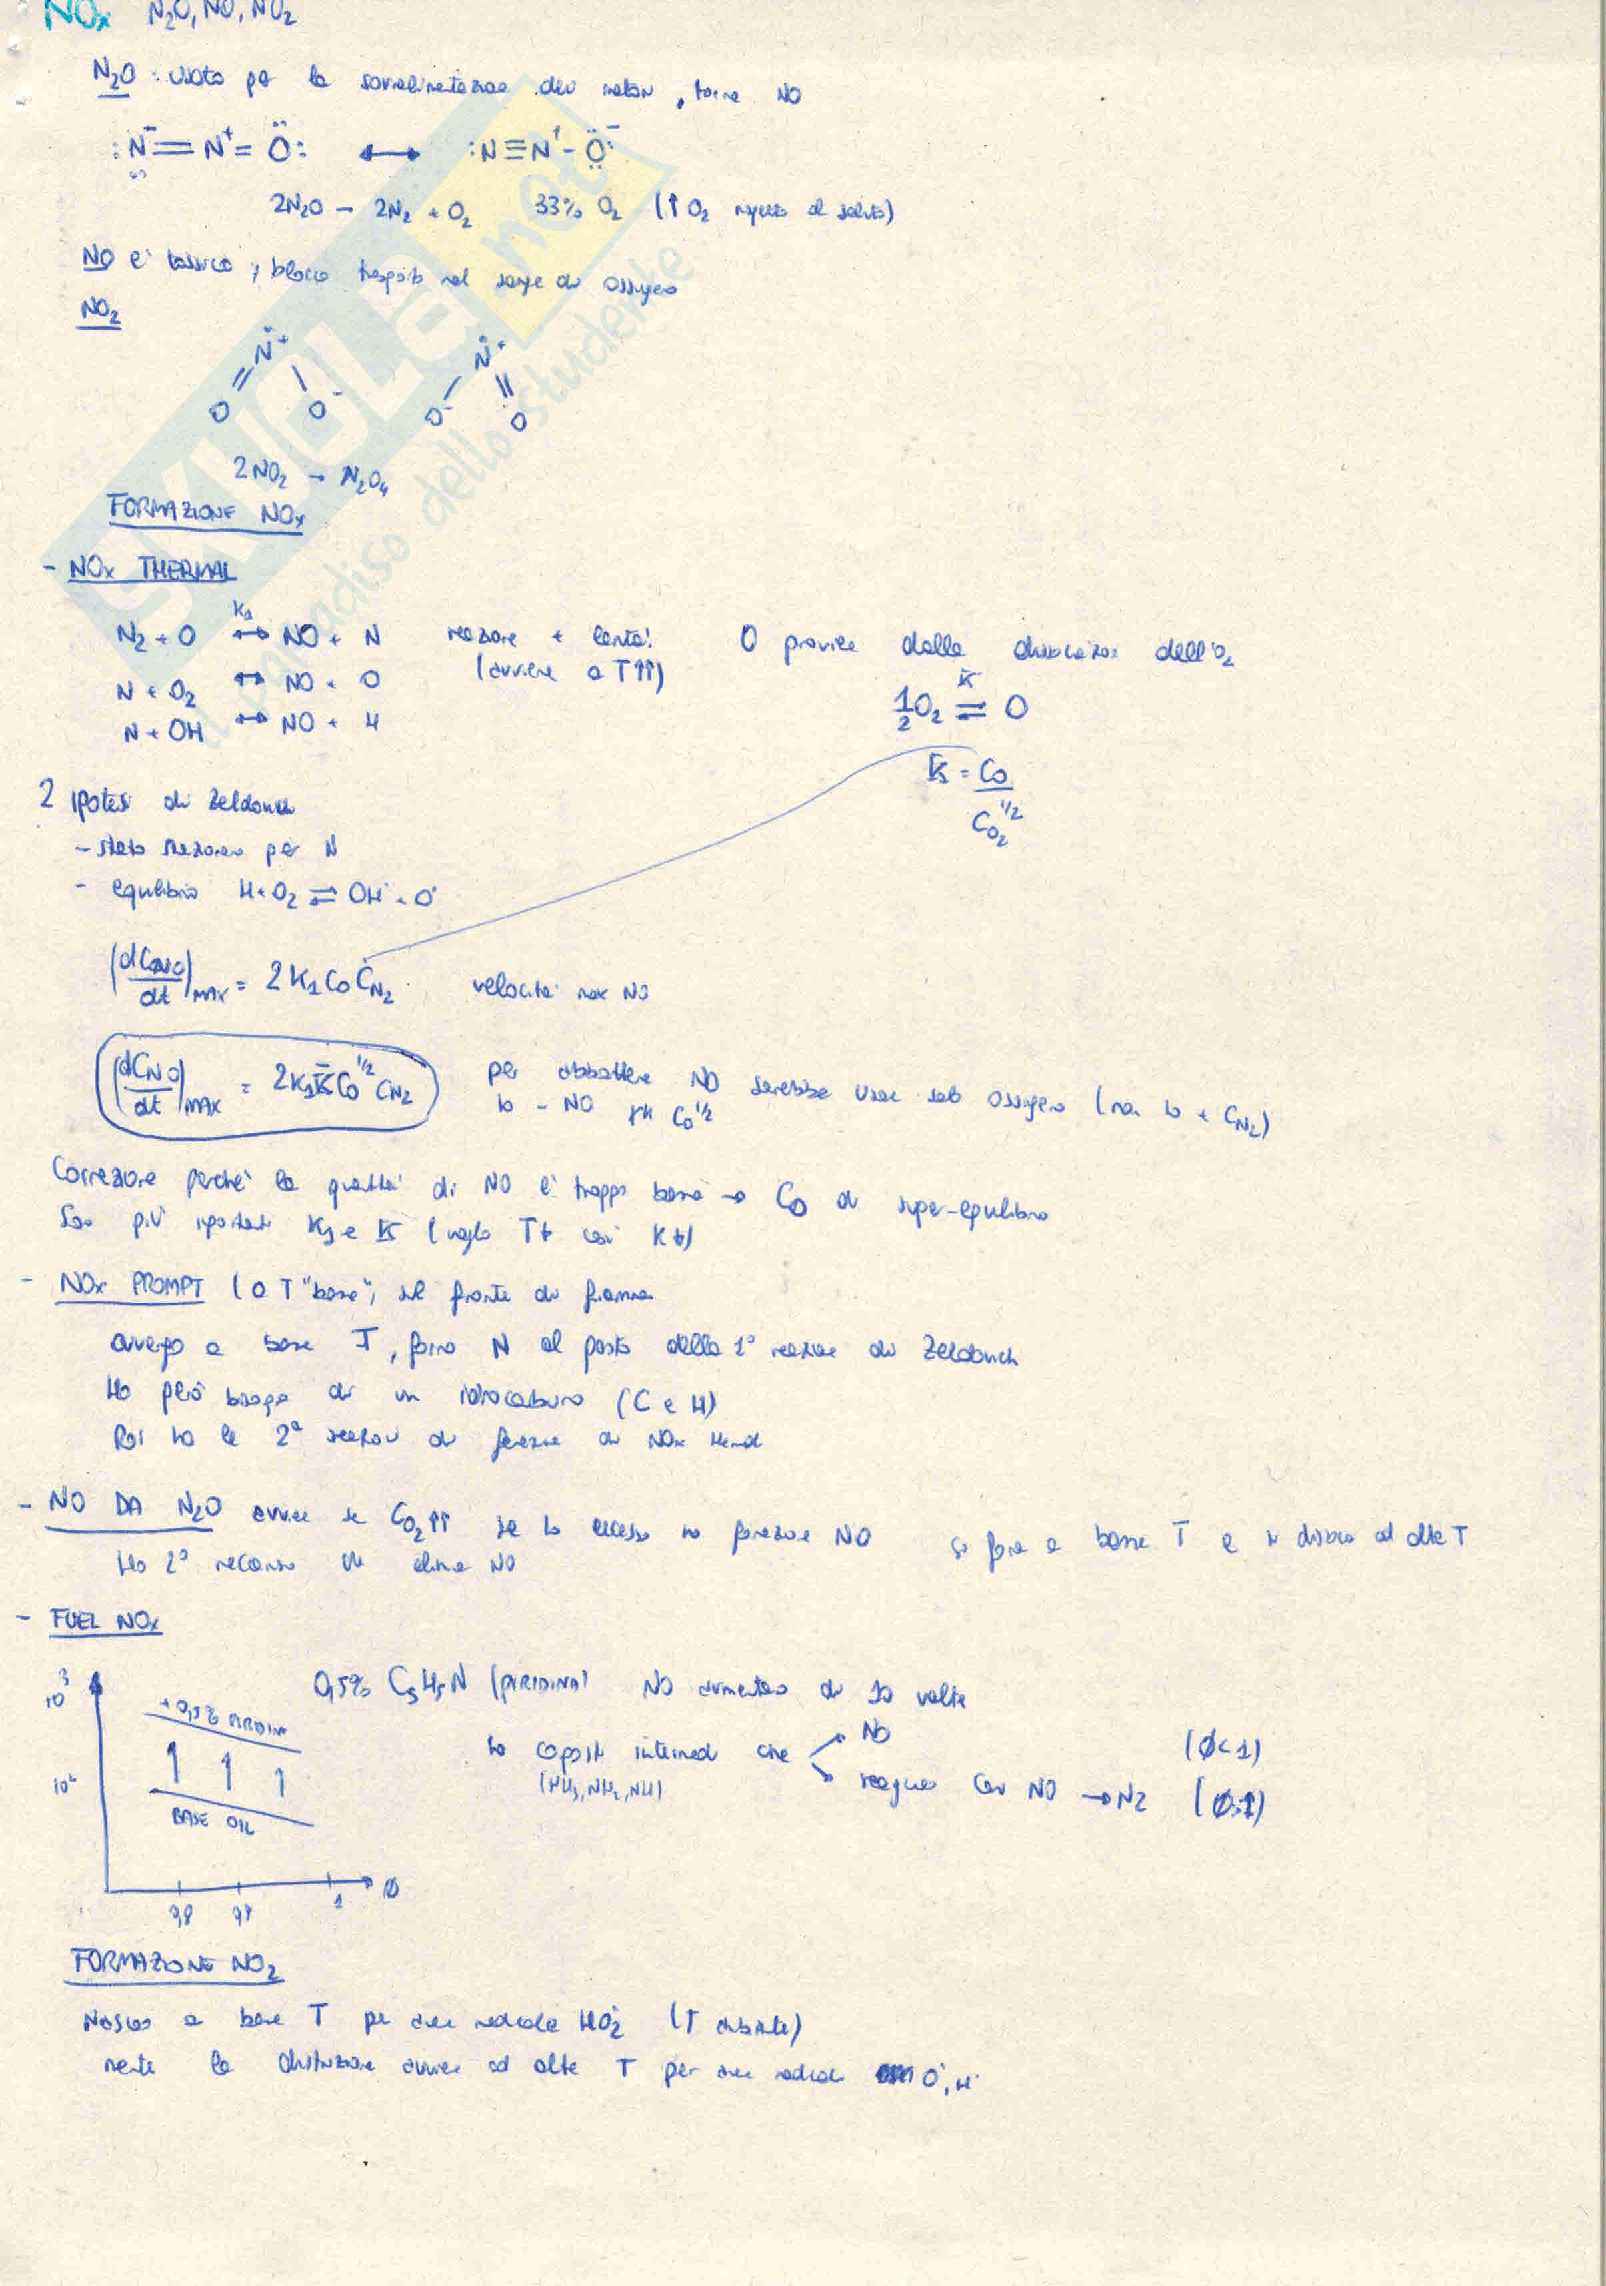 NOx N₂O, NO, NO₂
N₂O : usato per la sovralimentazione dei motori, forma NO
:N⁻=N⁺=Ö: ↔ :N≡N⁺-Ö:⁻
2N₂O - 2N₂ + O₂ 33% O₂ (↑O₂ rispetto al solito)
NO è tossico, blocca trasporto nel sangue di ossigeno
NO₂
N⁺ N⁺
O O⁻ O⁻ O
2NO₂ → N₂O₄
FORMAZIONE NOx
- NOx THERMAL
N₂ + O ↔ NO + N reazione + lenta! O proviene dalla dissociazione dell'O₂
K₁
N + O₂ ↔ NO + O (avviene a T↑↑)
N + OH ↔ NO + H
½O₂ ⇌ O
K̄
K̄ = C_O / C_O₂^1/2
2 ipotesi di Zeldovich
- stato stazionario per N
- equilibrio H + O₂ ⇌ OH˙ + O˙
(dC_NO/dt)MAX = 2K₁C_O C_N₂ velocità max NO
(dC_NO/dt)MAX = 2K₁K̄C_O^1/2 C_N₂
per abbattere NO sarebbe usare solo ossigeno (non ho + C_N₂)
ho - NO C_O^1/2
Correzione perché la quantità di NO è troppo bassa → C_O di super-equilibrio
Sono più importanti K₁ e K̄ (voglio T↓ così K↓)
- NOx PROMPT (a T "basse", sul fronte di fiamma
avvengono a basse T, formo N al posto della 1ª reazione di Zeldovich
Ho però bisogno di un idrocarburo (C e H)
Poi ho le 2ª reazioni di formazione di NOx thermal
- NO DA N₂O avviene se C_O₂↑↑ se ho eccesso ho formazione NO si forma a basse T e si dissocia ad alte T
Ho 2° meccanismo che elimina NO
- FUEL NOx
10³
10²
+0,5% PIRIDINA
BASE OIL
0,8 0,9 1 ø
0,5% C₅H₅N (PIRIDINA) NO aumentano di 10 volte
ho composti intermedi che NO (ø<1)
(NH₃, NH₂, NH) reagiscono con NO → N₂ (ø>1)
FORMAZIONE NO₂
Nascono a basse T per avere radicale HO₂˙ (T ambiente)
mentre la distruzione avviene ad alte T per avere radicali O˙, H˙
SKUOLA.net
il paradiso dello studente